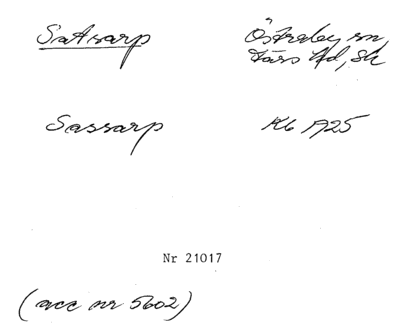 Satsarp Östraby sn,
Färs hd, Sk
Sassarp Kb 1925
Nr 21017
(acc nr 5602)